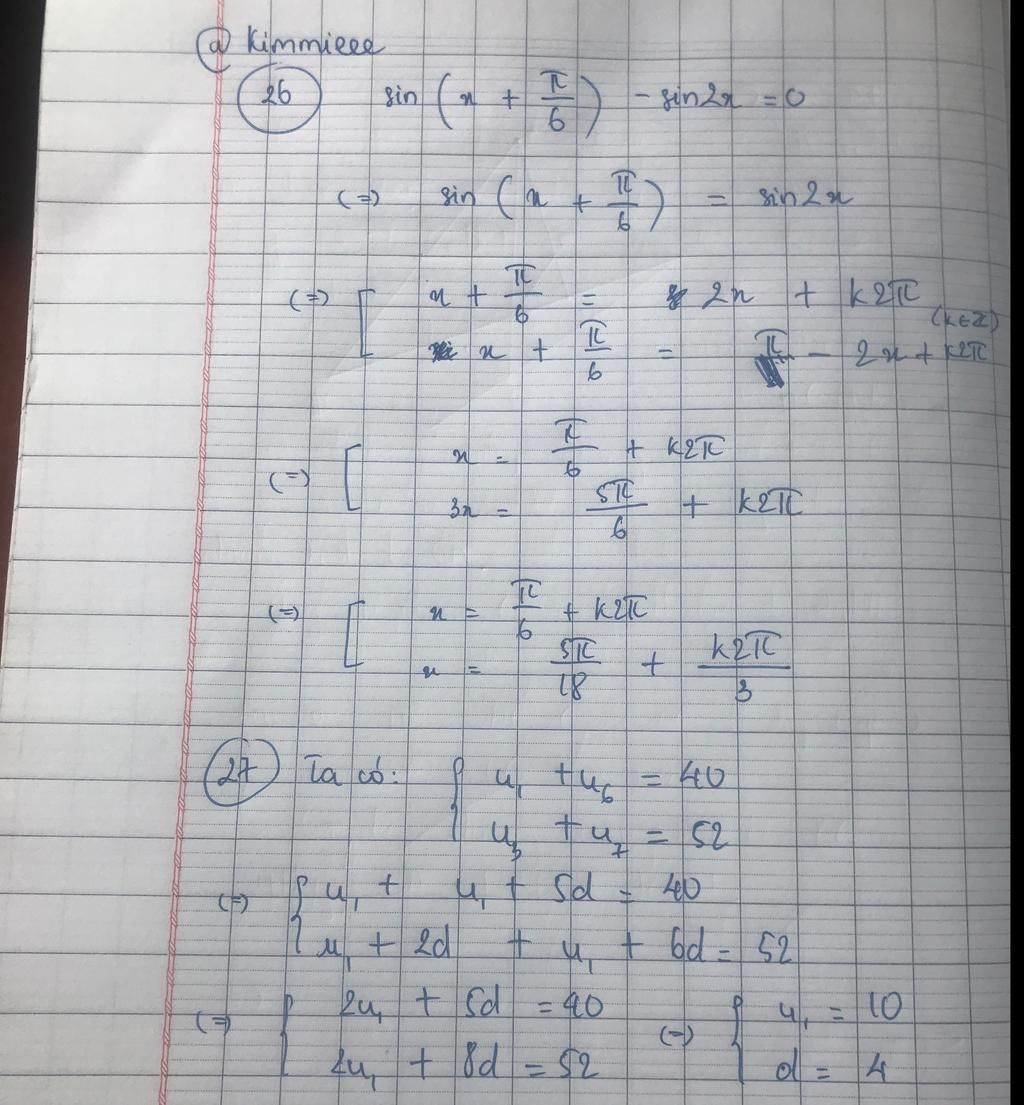 @ Kimmieee
26 sin (x + π/6) - sin2x = 0
(=) sin (x + π/6) = sin2x
(=) [ x + π/6 = 2x + k2π
(k∈Z)
x + π/6 = π - 2x + k2π
(=) [ x = π/6 + k2π
3x = 5π/6 + k2π
(=) [ x = π/6 + k2π
x = 5π/18 + k2π/3
27 Ta có: { u₁ + u₆ = 40
u₃ + u₇ = 52
(=) { u₁ + u₁ + 5d = 40
u₁ + 2d + u₁ + 6d = 52
(=) { 2u₁ + 5d = 40 (=) { u₁ = 10
2u₁ + 8d = 52 d = 4